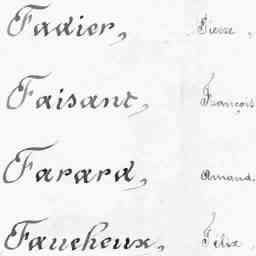 Fadier, Pierre,
Faisant, François
Farard, Armand.
Faucheux, Félix,